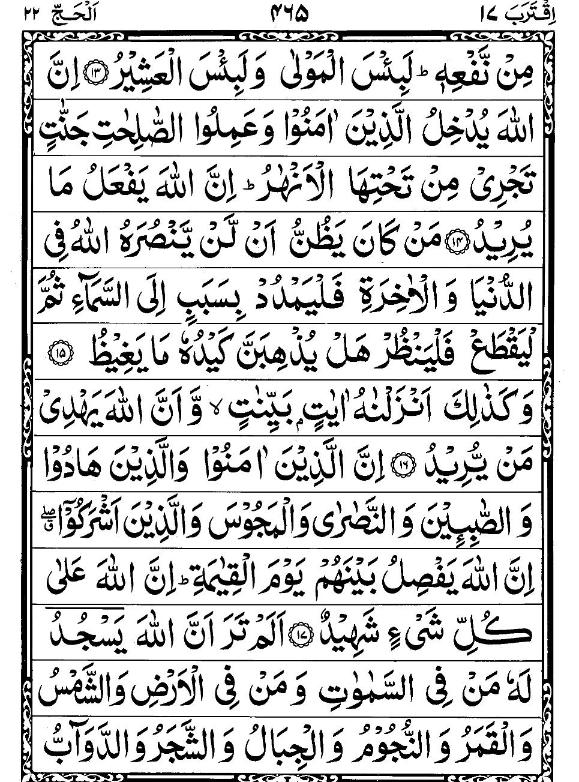 اِقْتَرَبَ ١٧ ٤٦٥ اَلْحَجّ ٢٢
مِنْ نَّفْعِهٖ ؕ لَبِئْسَ الْمَوْلٰى وَ لَبِئْسَ الْعَشِيْرُ ۝١٣ اِنَّ
اللّٰهَ يُدْخِلُ الَّذِيْنَ اٰمَنُوْا وَ عَمِلُوا الصّٰلِحٰتِ جَنّٰتٍ
تَجْرِيْ مِنْ تَحْتِهَا الْاَنْهٰرُ ؕ اِنَّ اللّٰهَ يَفْعَلُ مَا
يُرِيْدُ ۝١٤ مَنْ كَانَ يَظُنُّ اَنْ لَّنْ يَّنْصُرَهُ اللّٰهُ فِي
الدُّنْيَا وَ الْاٰخِرَةِ فَلْيَمْدُدْ بِسَبَبٍ اِلَى السَّمَآءِ ثُمَّ
لْيَقْطَعْ فَلْيَنْظُرْ هَلْ يُذْهِبَنَّ كَيْدُهٗ مَا يَغِيْظُ ۝١٥
وَ كَذٰلِكَ اَنْزَلْنٰهُ اٰيٰتٍۭ بَيِّنٰتٍ ۙ وَّ اَنَّ اللّٰهَ يَهْدِيْ
مَنْ يُّرِيْدُ ۝١٦ اِنَّ الَّذِيْنَ اٰمَنُوْا وَالَّذِيْنَ هَادُوْا
وَ الصّٰبِـِٕيْنَ وَ النَّصٰرٰى وَ الْمَجُوْسَ وَالَّذِيْنَ اَشْرَكُوْۤا ۖۗ
اِنَّ اللّٰهَ يَفْصِلُ بَيْنَهُمْ يَوْمَ الْقِيٰمَةِ ؕ اِنَّ اللّٰهَ عَلٰى
كُلِّ شَيْءٍ شَهِيْدٌ ۝١٧ اَلَمْ تَرَ اَنَّ اللّٰهَ يَسْجُدُ
لَهٗ مَنْ فِي السَّمٰوٰتِ وَ مَنْ فِي الْاَرْضِ وَالشَّمْسُ
وَ الْقَمَرُ وَ النُّجُوْمُ وَ الْجِبَالُ وَ الشَّجَرُ وَ الدَّوَآبُّ